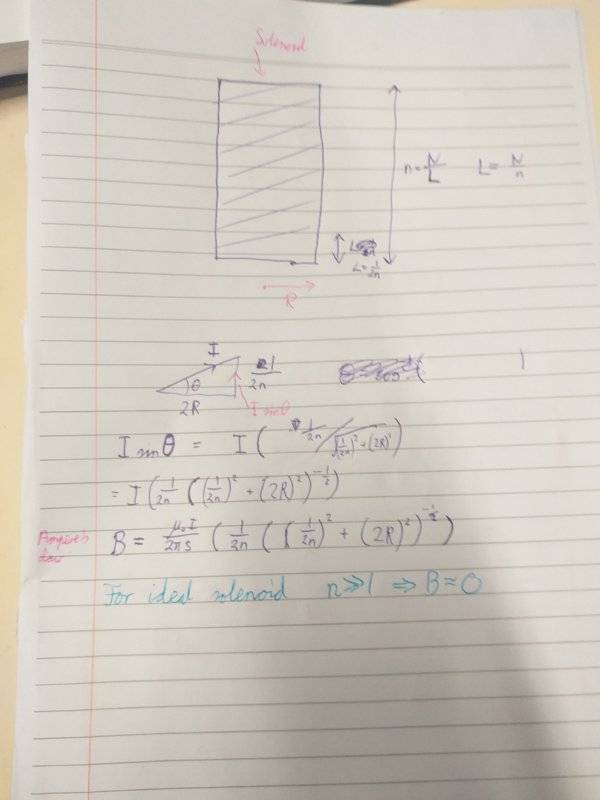 Solenoid
n = N/L L = N/n
L = 1/2n
R
I
θ
1/2n
2R
I sinθ
I sinθ = I ( 1/2n / √((1/2n)² + (2R)²) )
= I ( 1/2n ( (1/2n)² + (2R)² )^(-1/2) )
Ampere's law B = μ₀I/2πs ( 1/2n ( (1/2n)² + (2R)² )^(-1/2) )
For ideal solenoid n≫1 ⇒ B≈0